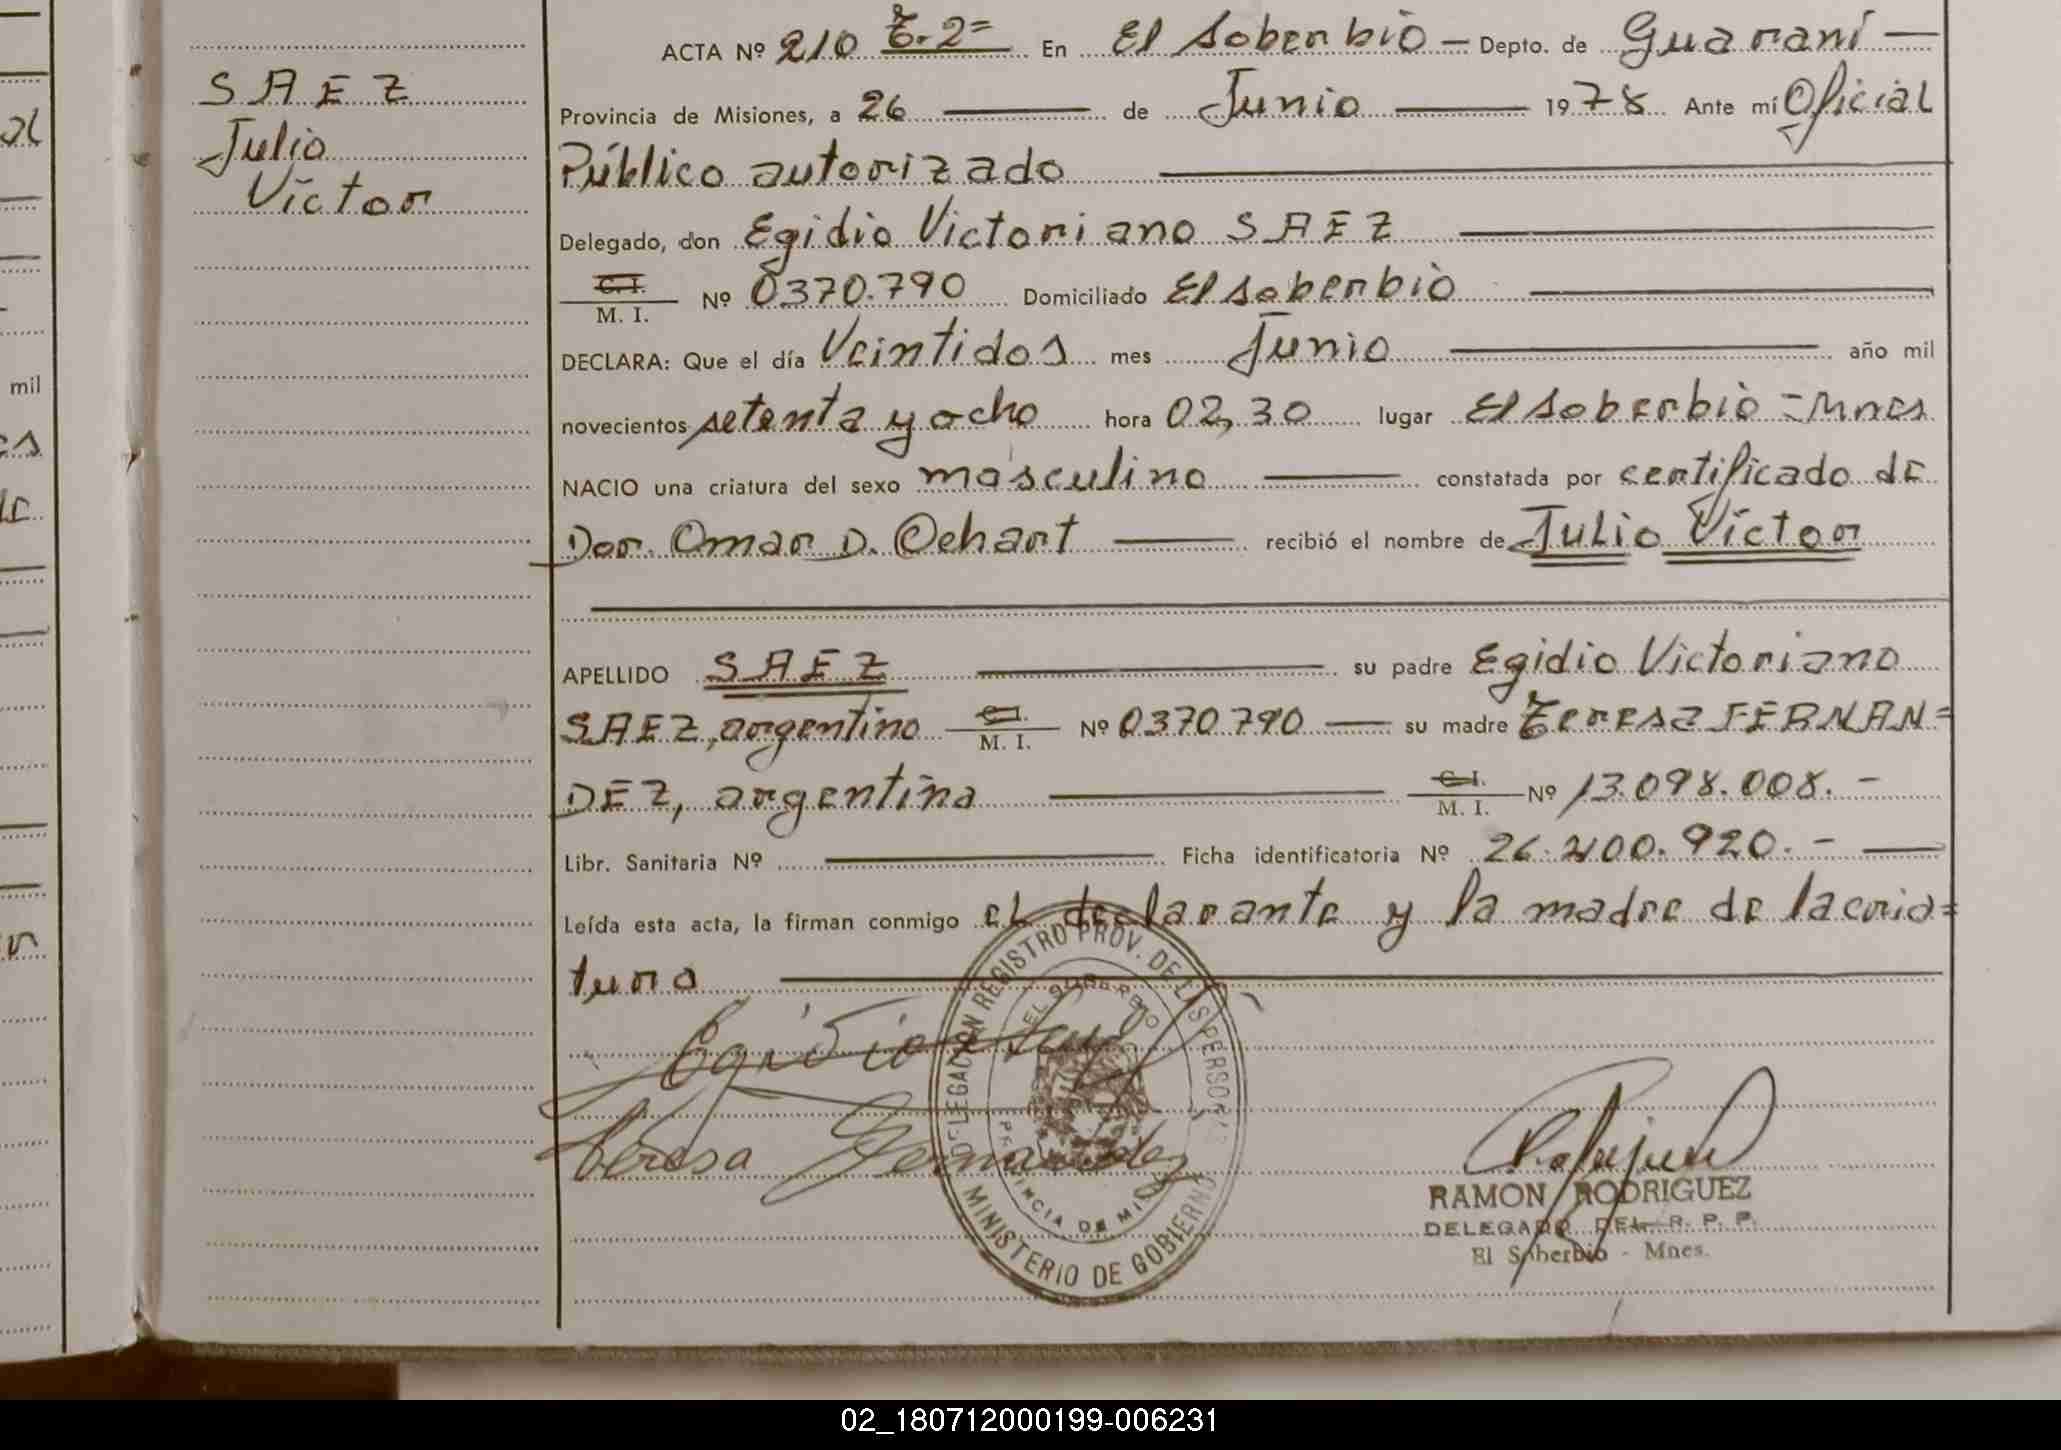 SAEZ
Julio
Víctor
ACTA Nº 210 T. 2= En El Soberbio - Depto. de Guaraní
Provincia de Misiones, a 26 de Junio 1978 Ante mí Oficial
Público autorizado
Delegado, don Egidio Victoriano SAEZ
C. I.
M. I. Nº 0370.790 Domiciliado El Soberbio
DECLARA: Que el día Veintidos mes Junio año mil
novecientos setenta y ocho hora 02,30 lugar El Soberbio = Mnes
NACIO una criatura del sexo masculino constatada por certificado de
Dor. Omar D. Oehart recibió el nombre de Julio Víctor
APELLIDO SAEZ su padre Egidio Victoriano
SAEZ, argentino C. I. M. I. Nº 0370.790 su madre Teresa FERNAN=
DEZ, argentina C. I. M. I. Nº 13.098.008. -
Libr. Sanitaria Nº Ficha identificatoria Nº 26.200.920. -
Leída esta acta, la firman conmigo el declarante y la madre de la cria=
tura
Egidio Saez
Teresa Fernandez
DELEGACION REGISTRO PROV. DE LAS PERSONAS
EL SOBERBIO
PROVINCIA DE MIS
MINISTERIO DE GOBIERNO
RAMON RODRIGUEZ
DELEGADO DEL R. P. P.
El Soberbio - Mnes.
al
mil
es
de
02_180712000199-006231